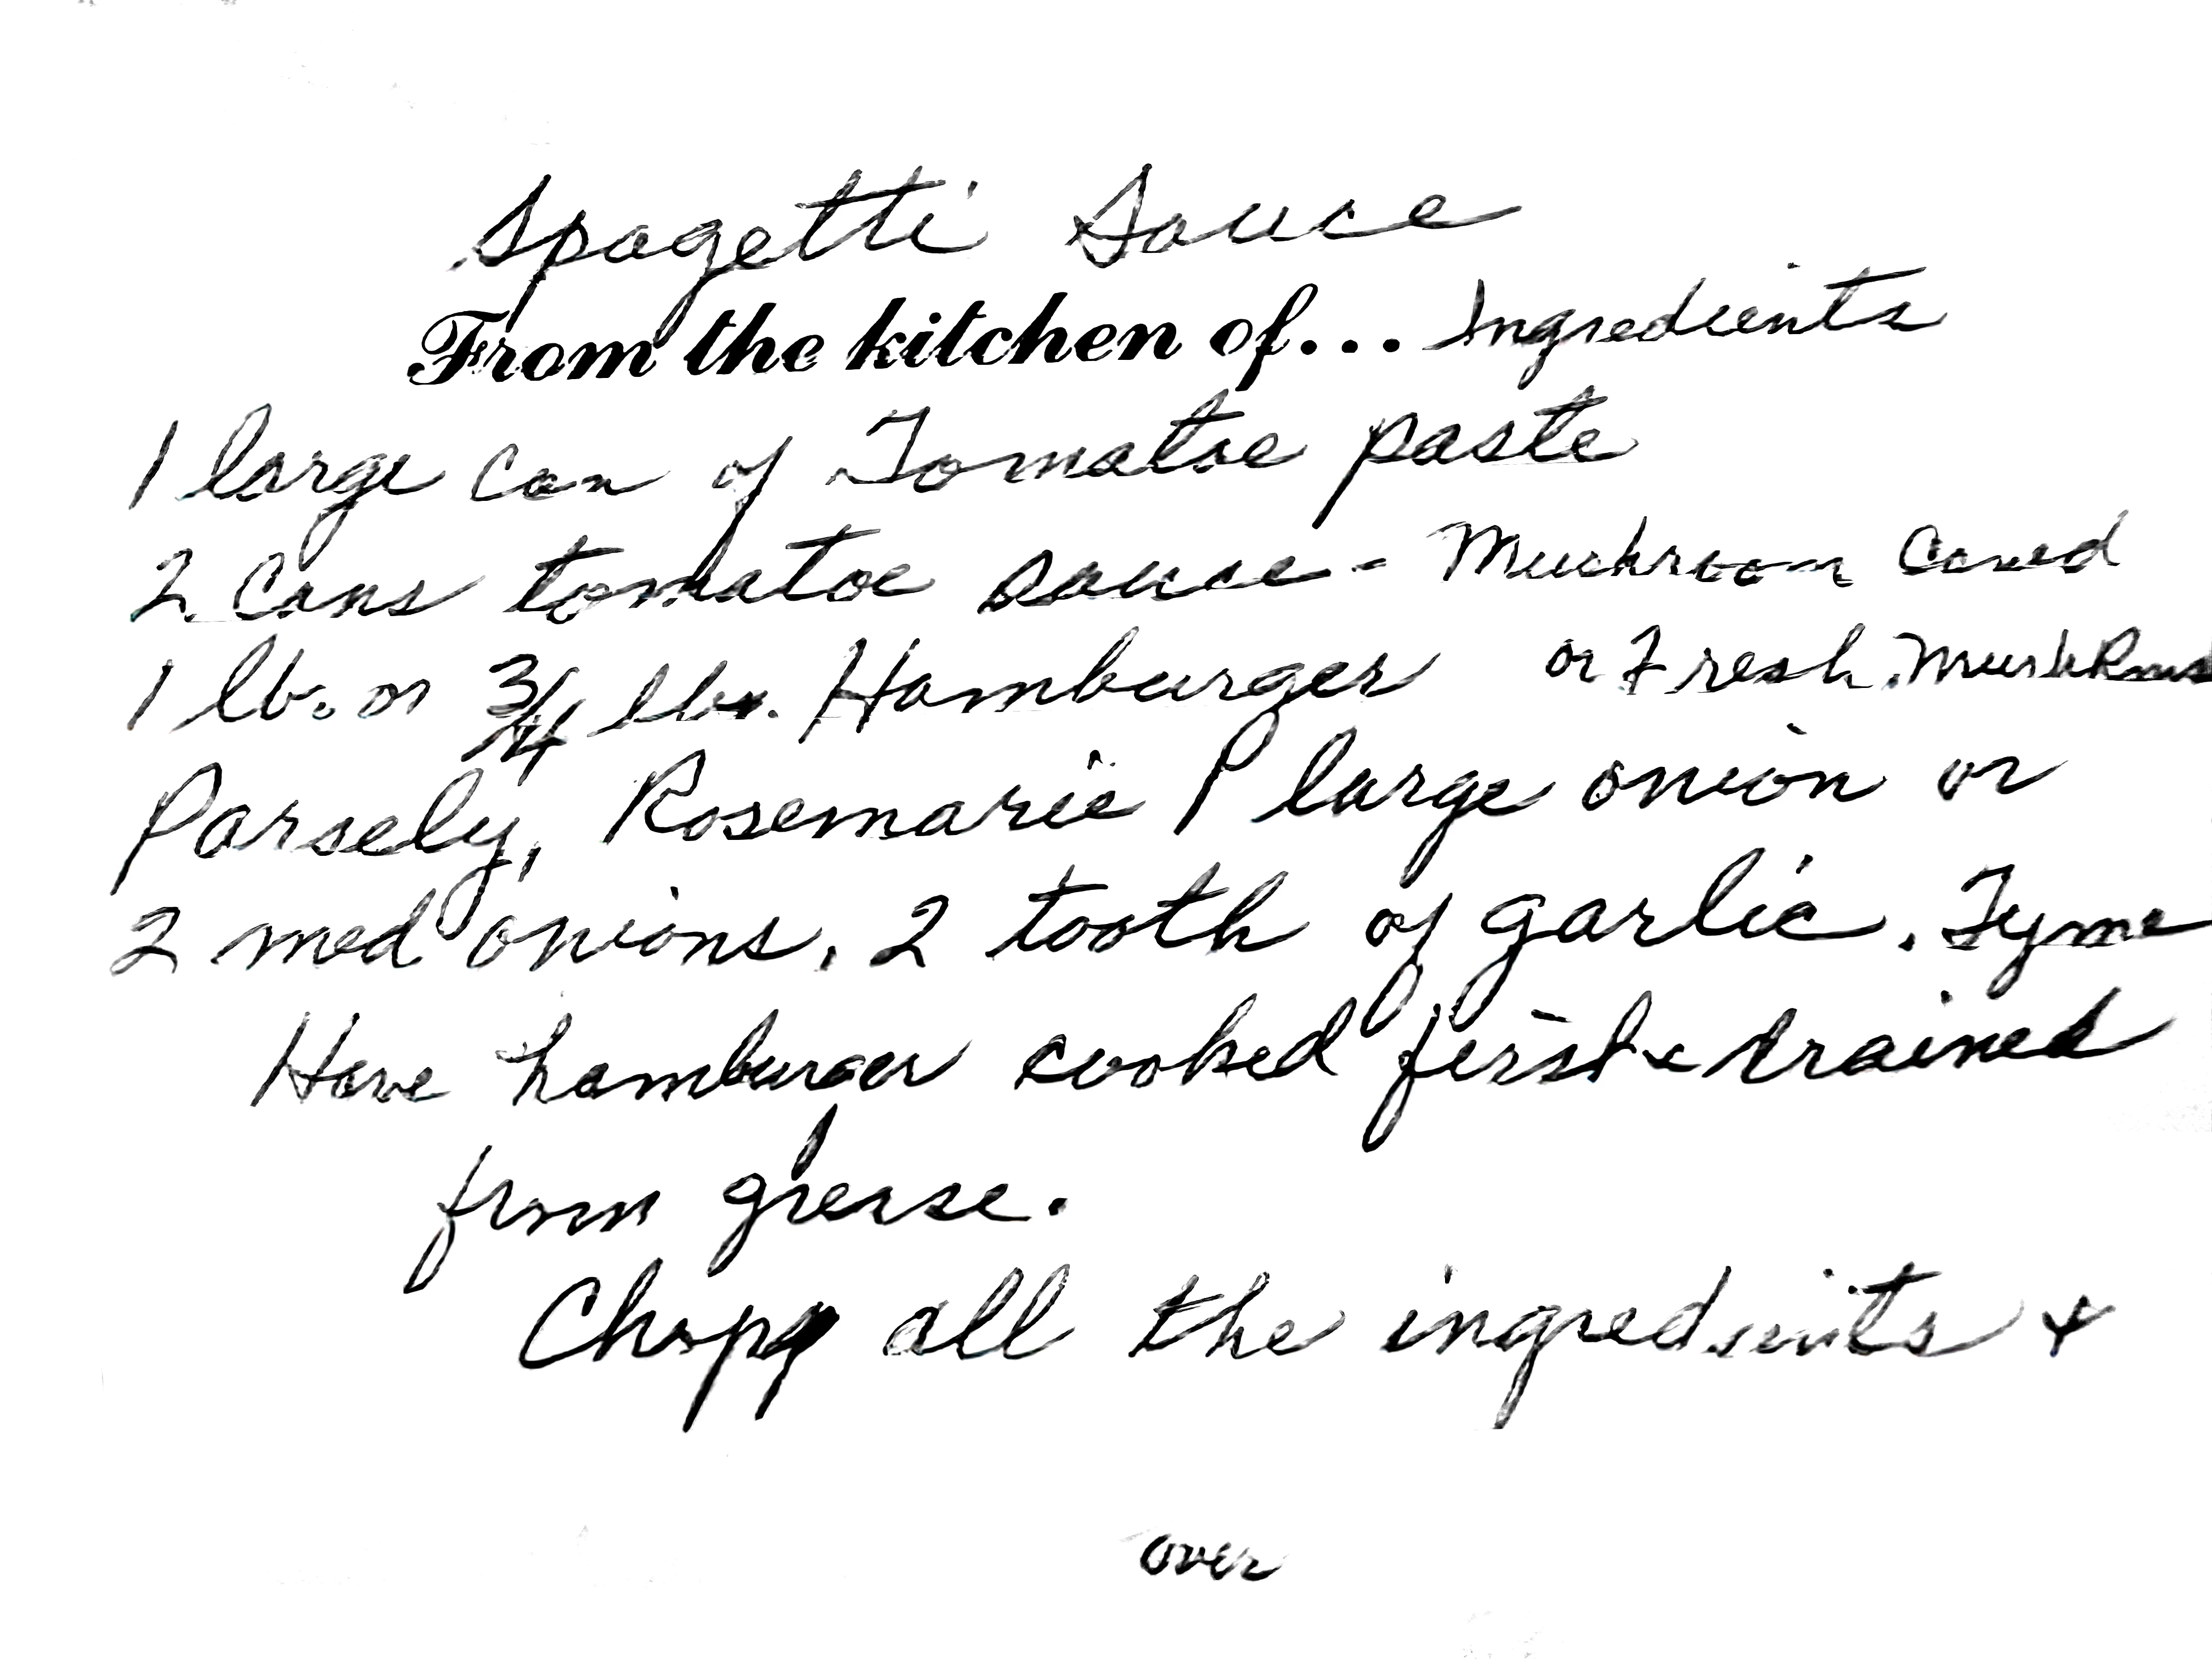 Spagetti Sauce
From the kitchen of... Ingredients
1 large can of Tomatoe paste
2 Cans tomatoe sauce - Mushroom Caned
1 lb. or 3/4 lbs. Hamburger or Fresh
Parsely, Rosemarie 1 large onion or
2 med onions, 2 tooth of garlic, Tyme
Have hamburger cooked first & drained
from grease.
Chopp all the ingredients &
over